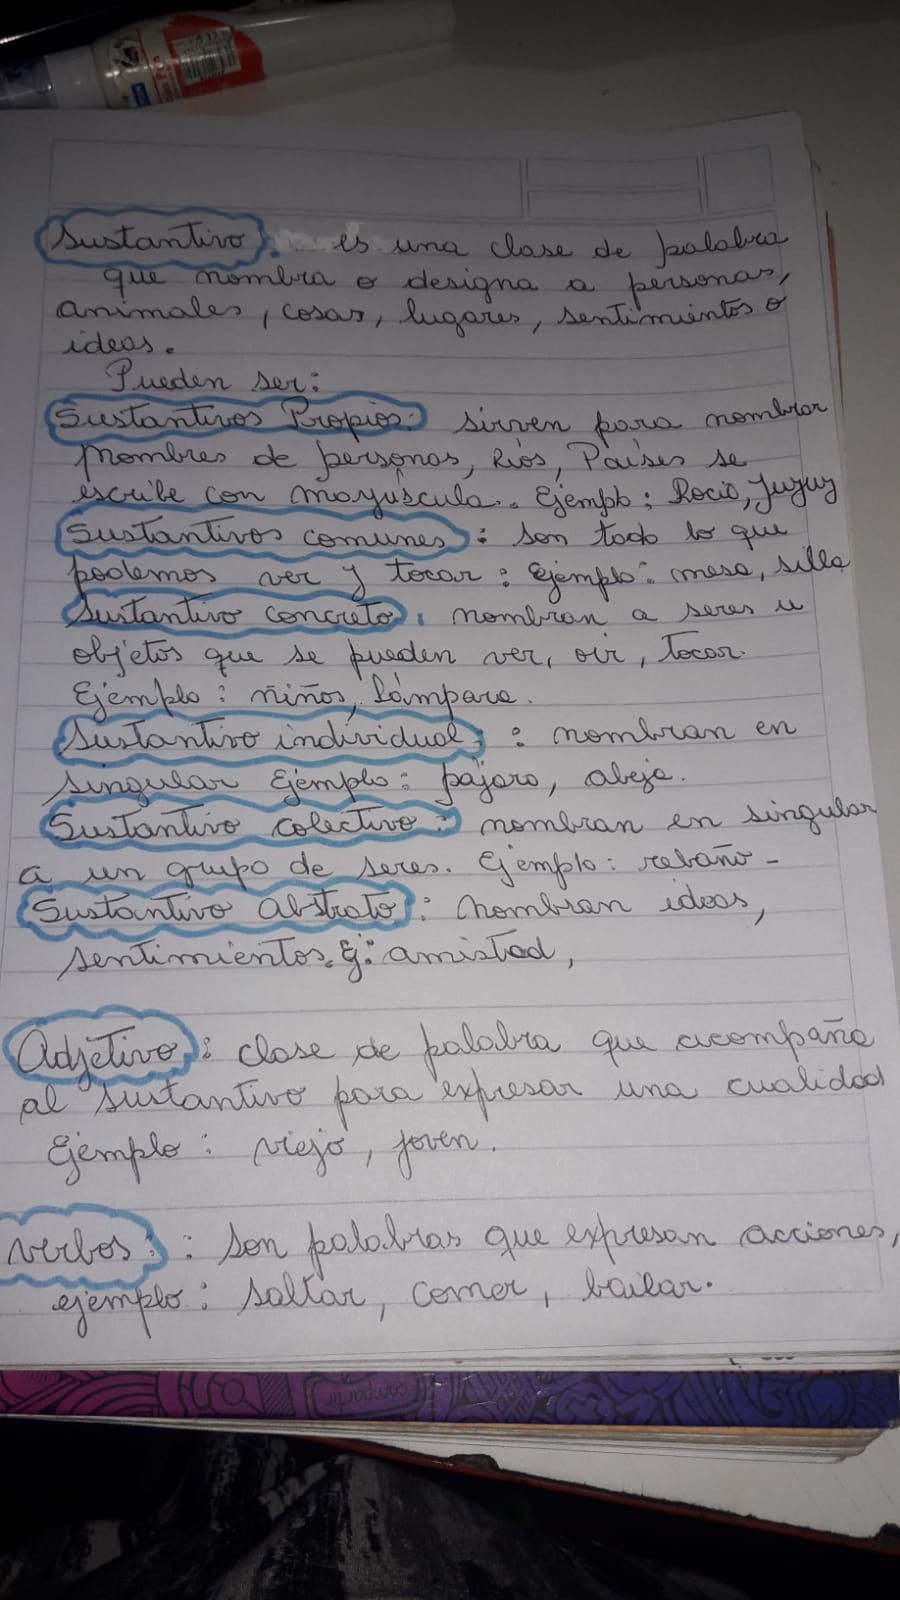 Sustantivo: es una clase de palabra
que nombra o designa a personas,
animales, cosas, lugares, sentimientos o
ideas.
Pueden ser:
Sustantivos Propios: sirven para nombrar
nombres de personas, Ríos, Países se
escribe con mayúscula. Ejemplo: Rocío, Jujuy
Sustantivos comunes: son todo lo que
podemos ver y tocar: Ejemplo: mesa, silla
Sustantivo concreto: nombran a seres u
objetos que se pueden ver, oir, tocar.
Ejemplo: niños, lámpara.
Sustantivo individual: : nombran en
singular Ejemplo: pájaro, abeja.
Sustantivo colectivo: nombran en singular
a un grupo de seres. Ejemplo: rebaño-
Sustantivo abstrato: nombran ideas,
sentimientos. Ej: amistad,
Adjetivo: clase de palabra que acompaña
al sustantivo para expresar una cualidad
Ejemplo: viejo, joven.
verbos: : son palabras que expresan acciones,
ejemplo: saltar, comer, bailar.
compartir